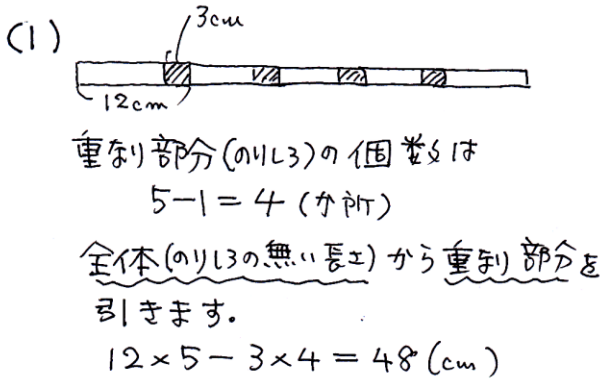 (1)
3cm
12cm
重なり部分(のりしろ)の個数は
5-1=4 (か所)
全体(のりしろの無い長さ)から重なり部分を
引きます。
12×5-3×4=48(cm)